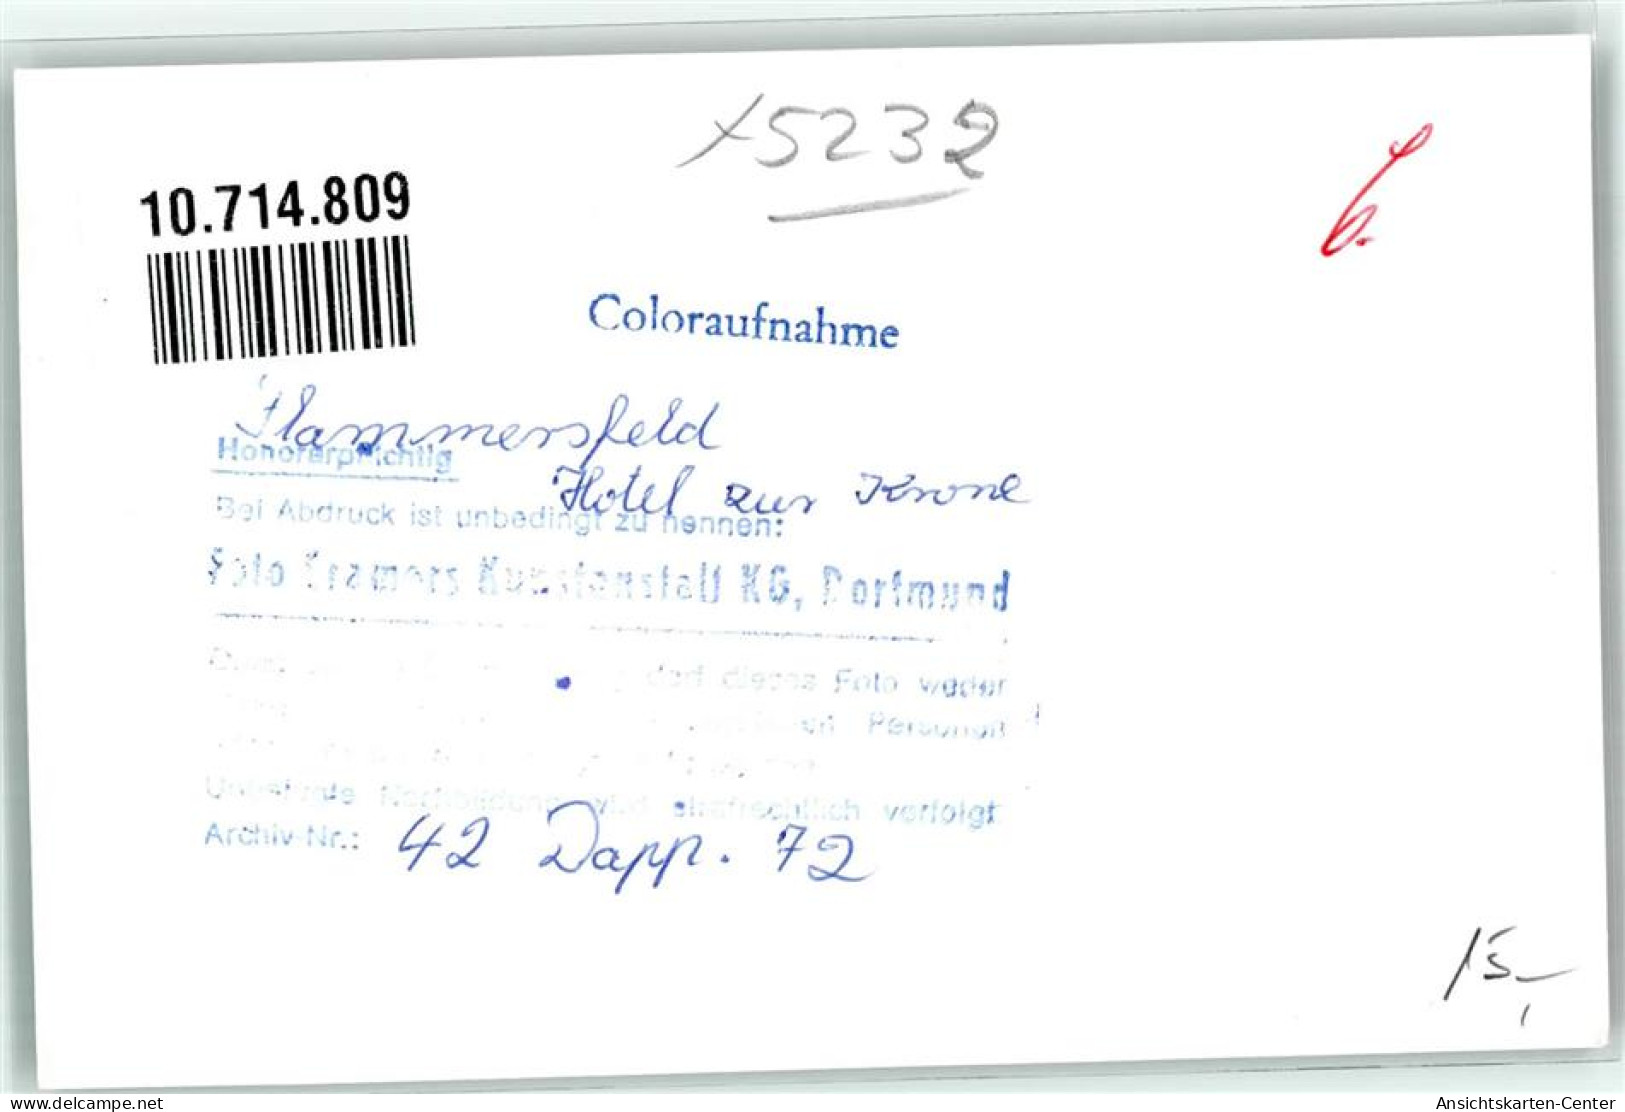 x5232
10.714.809
Coloraufnahme
Flammersfeld
Honorarpflichtig
Hotel zur Krone
Bei Abdruck ist unbedingt zu nennen:
Foto Cramers Kunstanstalt KG, Dortmund
darf dieses Foto weder
Personen
Unbefugte Nachbildung wird strafrechtlich verfolgt
Archiv-Nr.: 42 Dapp. 72
15,-
www.delcampe.net
Ansichtskarten-Center